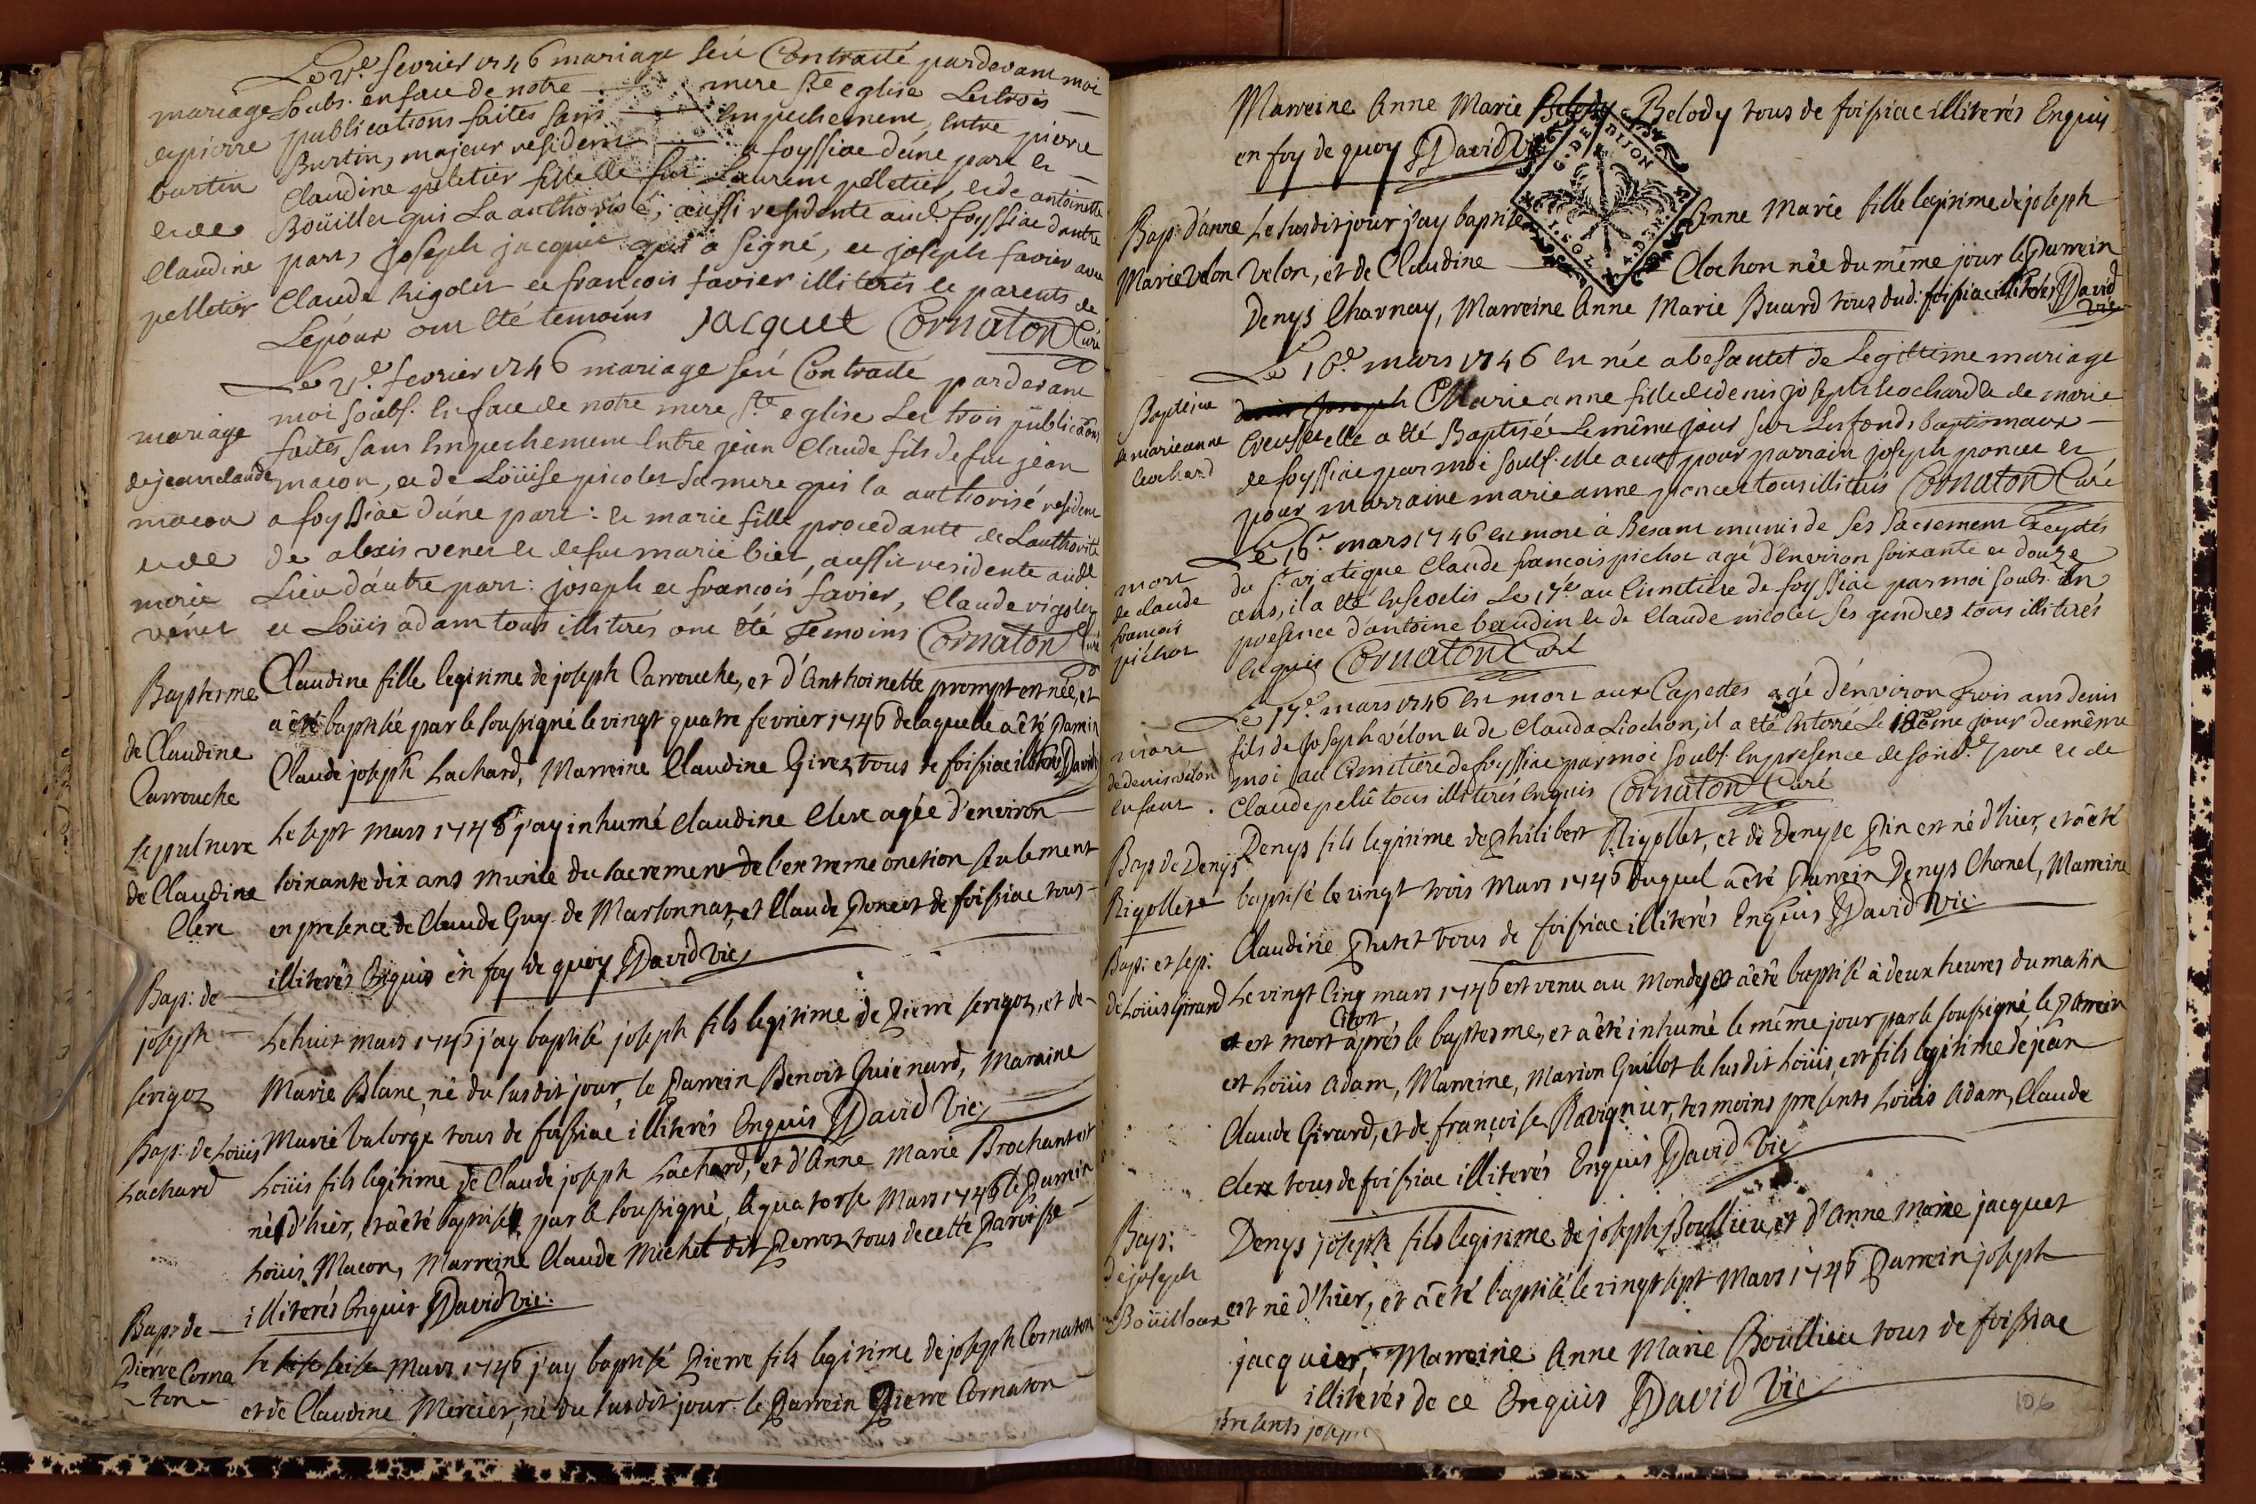 Le 21e fevrier 1746 mariage fut Contracté pardevant moi
mariage soubs. en face de notre mere Ste eglise Les trois
publications faites sans Empechement, Entre pierre
de pierre Burtin, majeur resident a foyssiac d'une part et
burtin Claudine peletier fille de fut Laurent péletier, et de antoinette
et de Boüillet qui La authorisé, aussi residente aud. foyssiac d'autre
Claudine part, joseph jacquet qui a signé, et joseph favier avec
pelletier Claude Rigolet et françois favier illiterés et parents de
L'epoux ont été temoins Jacquet Cornaton Curé
Le 21e. fevrier 1746 mariage fut Contracté pardevant
moi soubs. En face de notre mere Ste eglise Les trois publications
mariage faites sans Empechement Entre jean Claude fils de fut jean
de jean claude macon, et de Loüise picolet sa mere qui la authorisé resident
macon a foyssiac d'une part : et marie fille procedante de L'authorité
et de de alexis venet et de fut marie biet, aussi residente aud.
marie Lieu d'autre part : joseph et françois favier, Claude rigolet
vénet et Loüis adam tous illiterés ont été temoins Cornaton Curé
Baptesme Claudine fille legitime de joseph Carrouche, et d'Anthoinette prompt est née, et
a êté baptisée par le soussigné le vingt quatre fevrier 1746 de laquelle a êté Parrein
de Claudine Claude joseph Lachard, Marreine Claudine Givez tous de foissiac illiterés David
Carrouche
Sepulture Le sept mars 1746 j'ay inhumé Claudine Clerc agée d'environ
de Claudine soixante dix ans munie du sacrement de l'extreme onction seulement
Clerc en presence de Claude Guy de Marsonnat, et Claude Poncet de foissiac tous
illiterés Enquis en foy de quoy David Vic.
Bap: de
joseph Le huit mars 1746 j'ay baptisé joseph fils legitime de Pierre serigoz, et de
serigoz Marie Blanc, né du susdit jour, le Parrein Benoit Guienard, Maraine
Marie Valorge tous de foissiac illiterés Enquis David Vic.
Bap: de Loüis Loüis fils legitime de Claude joseph Lachard, et d'Anne Marie Brochant est
Lachard né d'hier, et a êté baptisé par le soussigné, le quatorse Mars 1746 le Parrein
Loüis Macon, Marreine Claude Michel dit Perroz tous de cette Paroisse
illiterés Enquis David Vic:
Bap: de
Pierre Corna Le seise Mars 1746 j'ay baptisé Pierre fils legitime de joseph Cornaton
-ton- et de Claudine Mercier, né du susdit jour le Parrein Pierre Cornaton
Marreine Anne Marie Belody tous de foissiac illiterés Enquis
en foy de quoy David Vic
G. DE DIJON
1. SOL 4. DEN
Bap: d'anne Le susdit jour j'ay baptisé Anne Marie fille legitime de joseph
Marie Velon Velon, et de Claudine Clochon née du même jour le Parrein
Denys Charnay, Marreine Anne Marie Buard tous dud: foissiac illiterés David Vic
Le 16e. mars 1746 Est née a besantet de Legittime mariage
Baptême Marie anne fille de denis joseph Leochard et de marie
de marie anne Creusset elle a été Baptisé Le même jour sur Les fonds baptismaux
leochard de foyssiac par moi soubs. elle a eut pour parrain joseph poncet et
pour marraine marie anne poncet tous illiterés Cornaton Curé
Le 16e mars 1746 est mort à Besant munis de ses sacrement Exeptés
mort du St. viatique Claude françois pichot agé d'Environ soixante et douze
de claude ans, il a été Enseveli Le 17e. au Cimetiere de foyssiac par moi soubs. En
françois presence d'antoine baudin et de Claude nicolet ses gendres tous illiterés
pichot Enquis Cornaton Curé
Le 17e. mars 1746 est mort aux Capettes agé d'environ trois ans denis
mort fils de joseph vélon et de Clauda Liochon, il a été Enterré Le 18ème jour du même
de denis vélon moi au Cimetiere de foyssiac par moi soubs. En presence de sond. pere et de
enfant. Claude pelû tous illiterés Enquis Cornaton Curé
Bap: de Denys Denys fils legitime de Philibert Rigollet, et de Denyse Pin est né d'hier, et a êté
Rigollet baptisé le vingt trois Mars 1746 duquel a êté Parrein Denys Chanel, Marreine
Claudine Putet tous de foissiac illiterés Enquis David Vic:
Bap: et sep:
de Loüis Girard Le vingt Cinq mars 1746 est venu au Monde, et a êté baptisé à deux heures du matin
est mort après le baptesme, et a êté inhumé le même jour par le soussigné le Parrein
est Loüis Adam, Marreine, Marion Guillot le susdit Loüis, est fils legitime de jean
Claude Girard, et de françoise Ravignier, tesmoins présents Loüis Adam, Claude
Clerc tous de foissiac illiterés Enquis David Vic
Bap: Denys joseph fils legitime de joseph Boullieu, et d'Anne Marie jacquet
de joseph est né d'hier, et a êté baptisé le vingt sept Mars 1746 Parrein joseph
Boüilloux jacquier, Marreine Anne Marie Boüllieu tous de foissiac
illitérés de ce Enquis David Vic
présents joseph
106